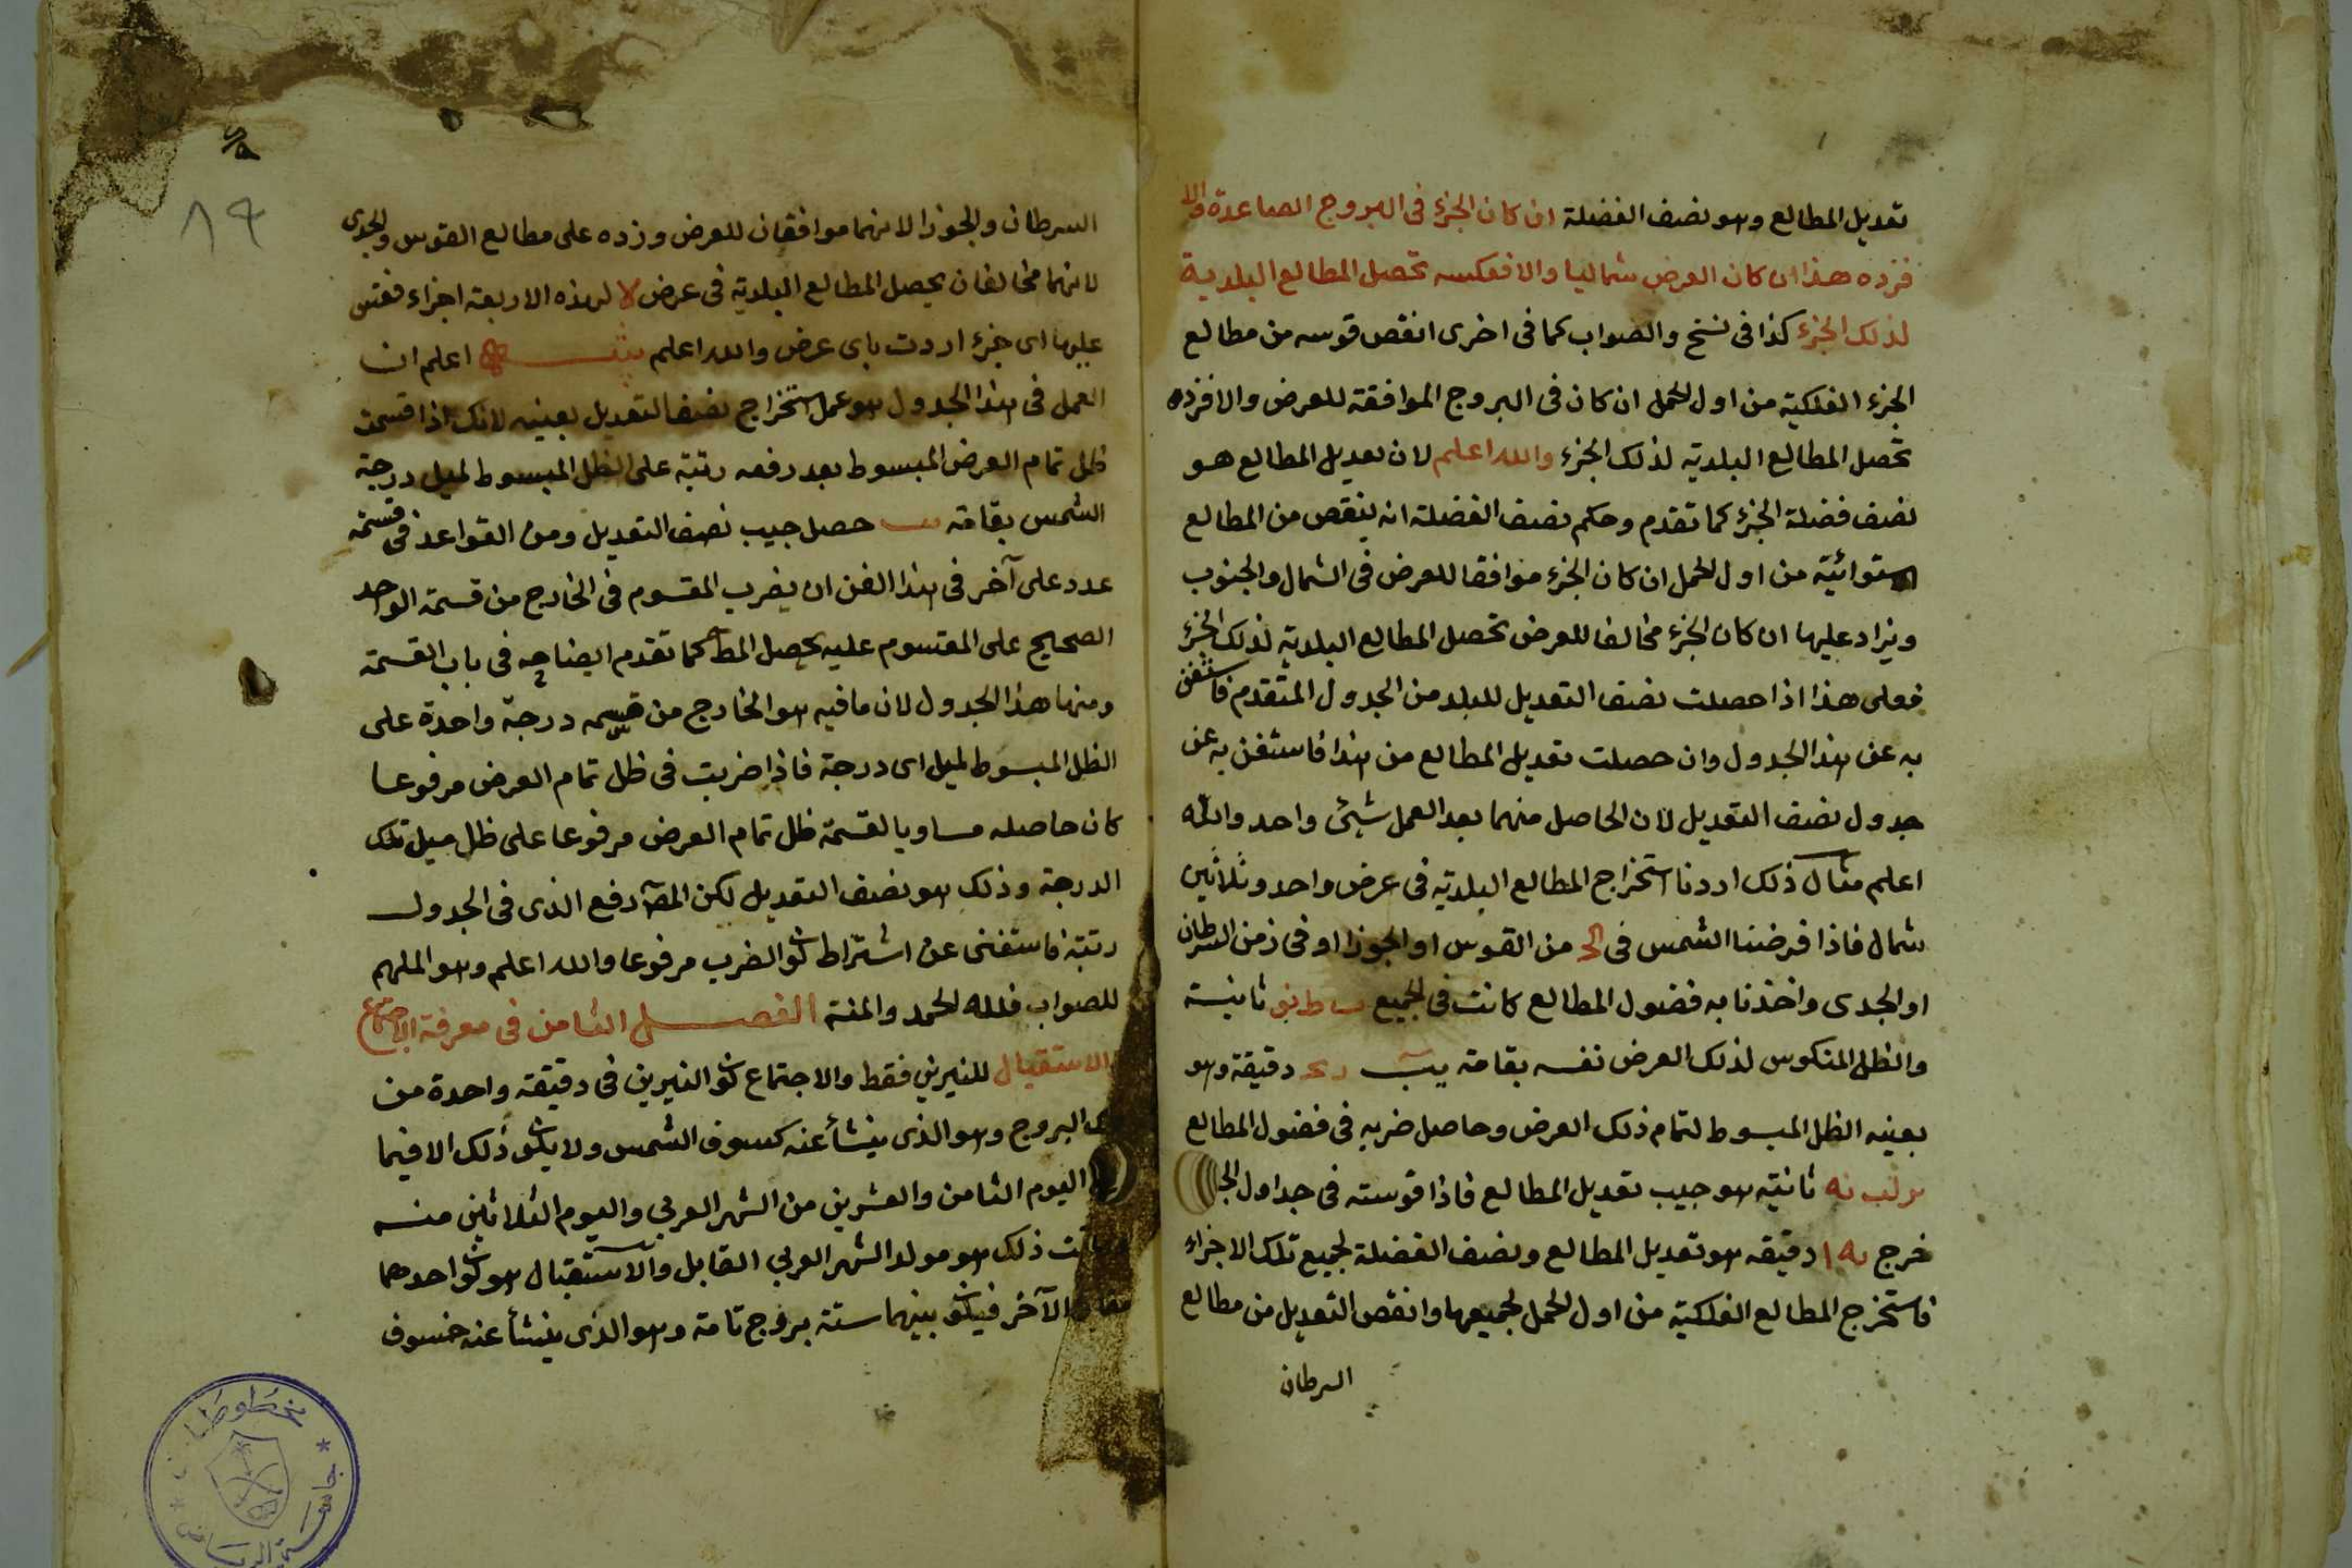 تعديل المطالع وهو نصف الفضلة ان كان الجزء فى البروج الصاعدة والا
فزده هذا ان كان العرض شماليا والا فعكسه تحصل المطالع البلدية
لذلك الجزء كذا فى نسخ والصواب كما فى اخرى انقص قوسه من مطالع
الجزء الفلكية من اول الحمل ان كان فى البروج الموافقة للعرض والا فزده
تحصل المطالع البلديه لذلك الجزء والله اعلم لان تعديل المطالع هو
نصف فضلة الجزء كما تقدم وحكم نصف الفضلة انه ينقص من المطالع
الاستوائية من اول الحمل ان كان الجزء موافقا للعرض فى الشمال والجنوب
ويزاد عليها ان كان الجزء مخالفا للعرض تحصل المطالع البلديه لذلك الجزء
فعلى هذا اذا حصلت نصف التعديل للبلد من الجدول المتقدم فاستغن
به عن هذا الجدول وان حصلت تعديل المطالع من هذا فاستغن به عن
جدول نصف التعديل لان الحاصل منهما بعد العمل شيئ واحد والله
اعلم مثال ذلك اردنا استخراج المطالع البلديه فى عرض واحد وثلاثين
شمال فاذا فرضنا الشمس فى من القوس او الجوزا او فى ز من السرطان
او الجدى واخذنا به فضول المطالع كانت فى الجميع ثانية
والظل المنكوس لذلك العرض نفسه بقامة يب دقيقة وهو
بعينه الظل المبسوط لتمام ذلك العرض وحاصل ضربه فى فضول المطالع
ثانية هو جيب تعديل المطالع فاذا قوسته فى جداول
خرج دقيقه هو تعديل المطالع ونصف الفضلة لجميع تلك الاجزاء
فاستخرج المطالع الفلكية من اول الحمل لجميعها وانقص التعديل من مطالع
السرطان
٨٩
السرطان والجوزا لانهما موافقان للعرض وزده على مطالع القوس والجدى
لانهما مخالفان يحصل المطالع البلدية فى عرض لا لهذه الاربعة اجزاء فقس
عليها اى جزء اردت باى عرض والله اعلم اعلم ان
العمل فى هذا الجدول هو عمل استخراج نصف التعديل بعينه لانك اذا قسمت
ظل تمام العرض المبسوط بعد رفعه رتبة على الظل المبسوط لميل درجة
الشمس بقامة حصل جيب نصف التعديل ومن القواعد فى قسمة
عدد على آخر فى هذا الفن ان يضرب المقسوم فى الخارج من قسمة الواحد
الصحيح على المقسوم عليه يحصل المط كما تقدم ايضاحه فى باب القسمة
ومنها هذا الجدول لان ما فيه هو الخارج من قسمه درجة واحدة على
الظل المبسوط لميل اى درجة فاذا ضربت فى ظل تمام العرض مرفوعا
كان حاصله مساويا لقسمة ظل تمام العرض مرفوعا على ظل ميل تلك
الدرجة وذلك هو نصف التعديل لكن رفع الذى فى الجدول
رتبة فاستغنى عن اشتراط الضرب مرفوعا والله اعلم وهو الملهم
للصواب فلله الحمد والمنة الفصل الثامن فى معرفة الاجتماع
والاستقبال للنيرين فقط والاجتماع النيرين فى دقيقة واحدة من
البروج وهو الذى ينشأ عنه كسوف الشمس ولا ذلك الا فيما
اليوم الثامن والعشرين من الشهر العربى واليوم الثلاثين منه
ذلك هو مولد الشهر العربي القابل والاستقبال هو احدهما
الآخر بينهما ستة بروج تامة وهو الذى ينشأ عنه خسوف
مخطوطات
جامعة الرياض